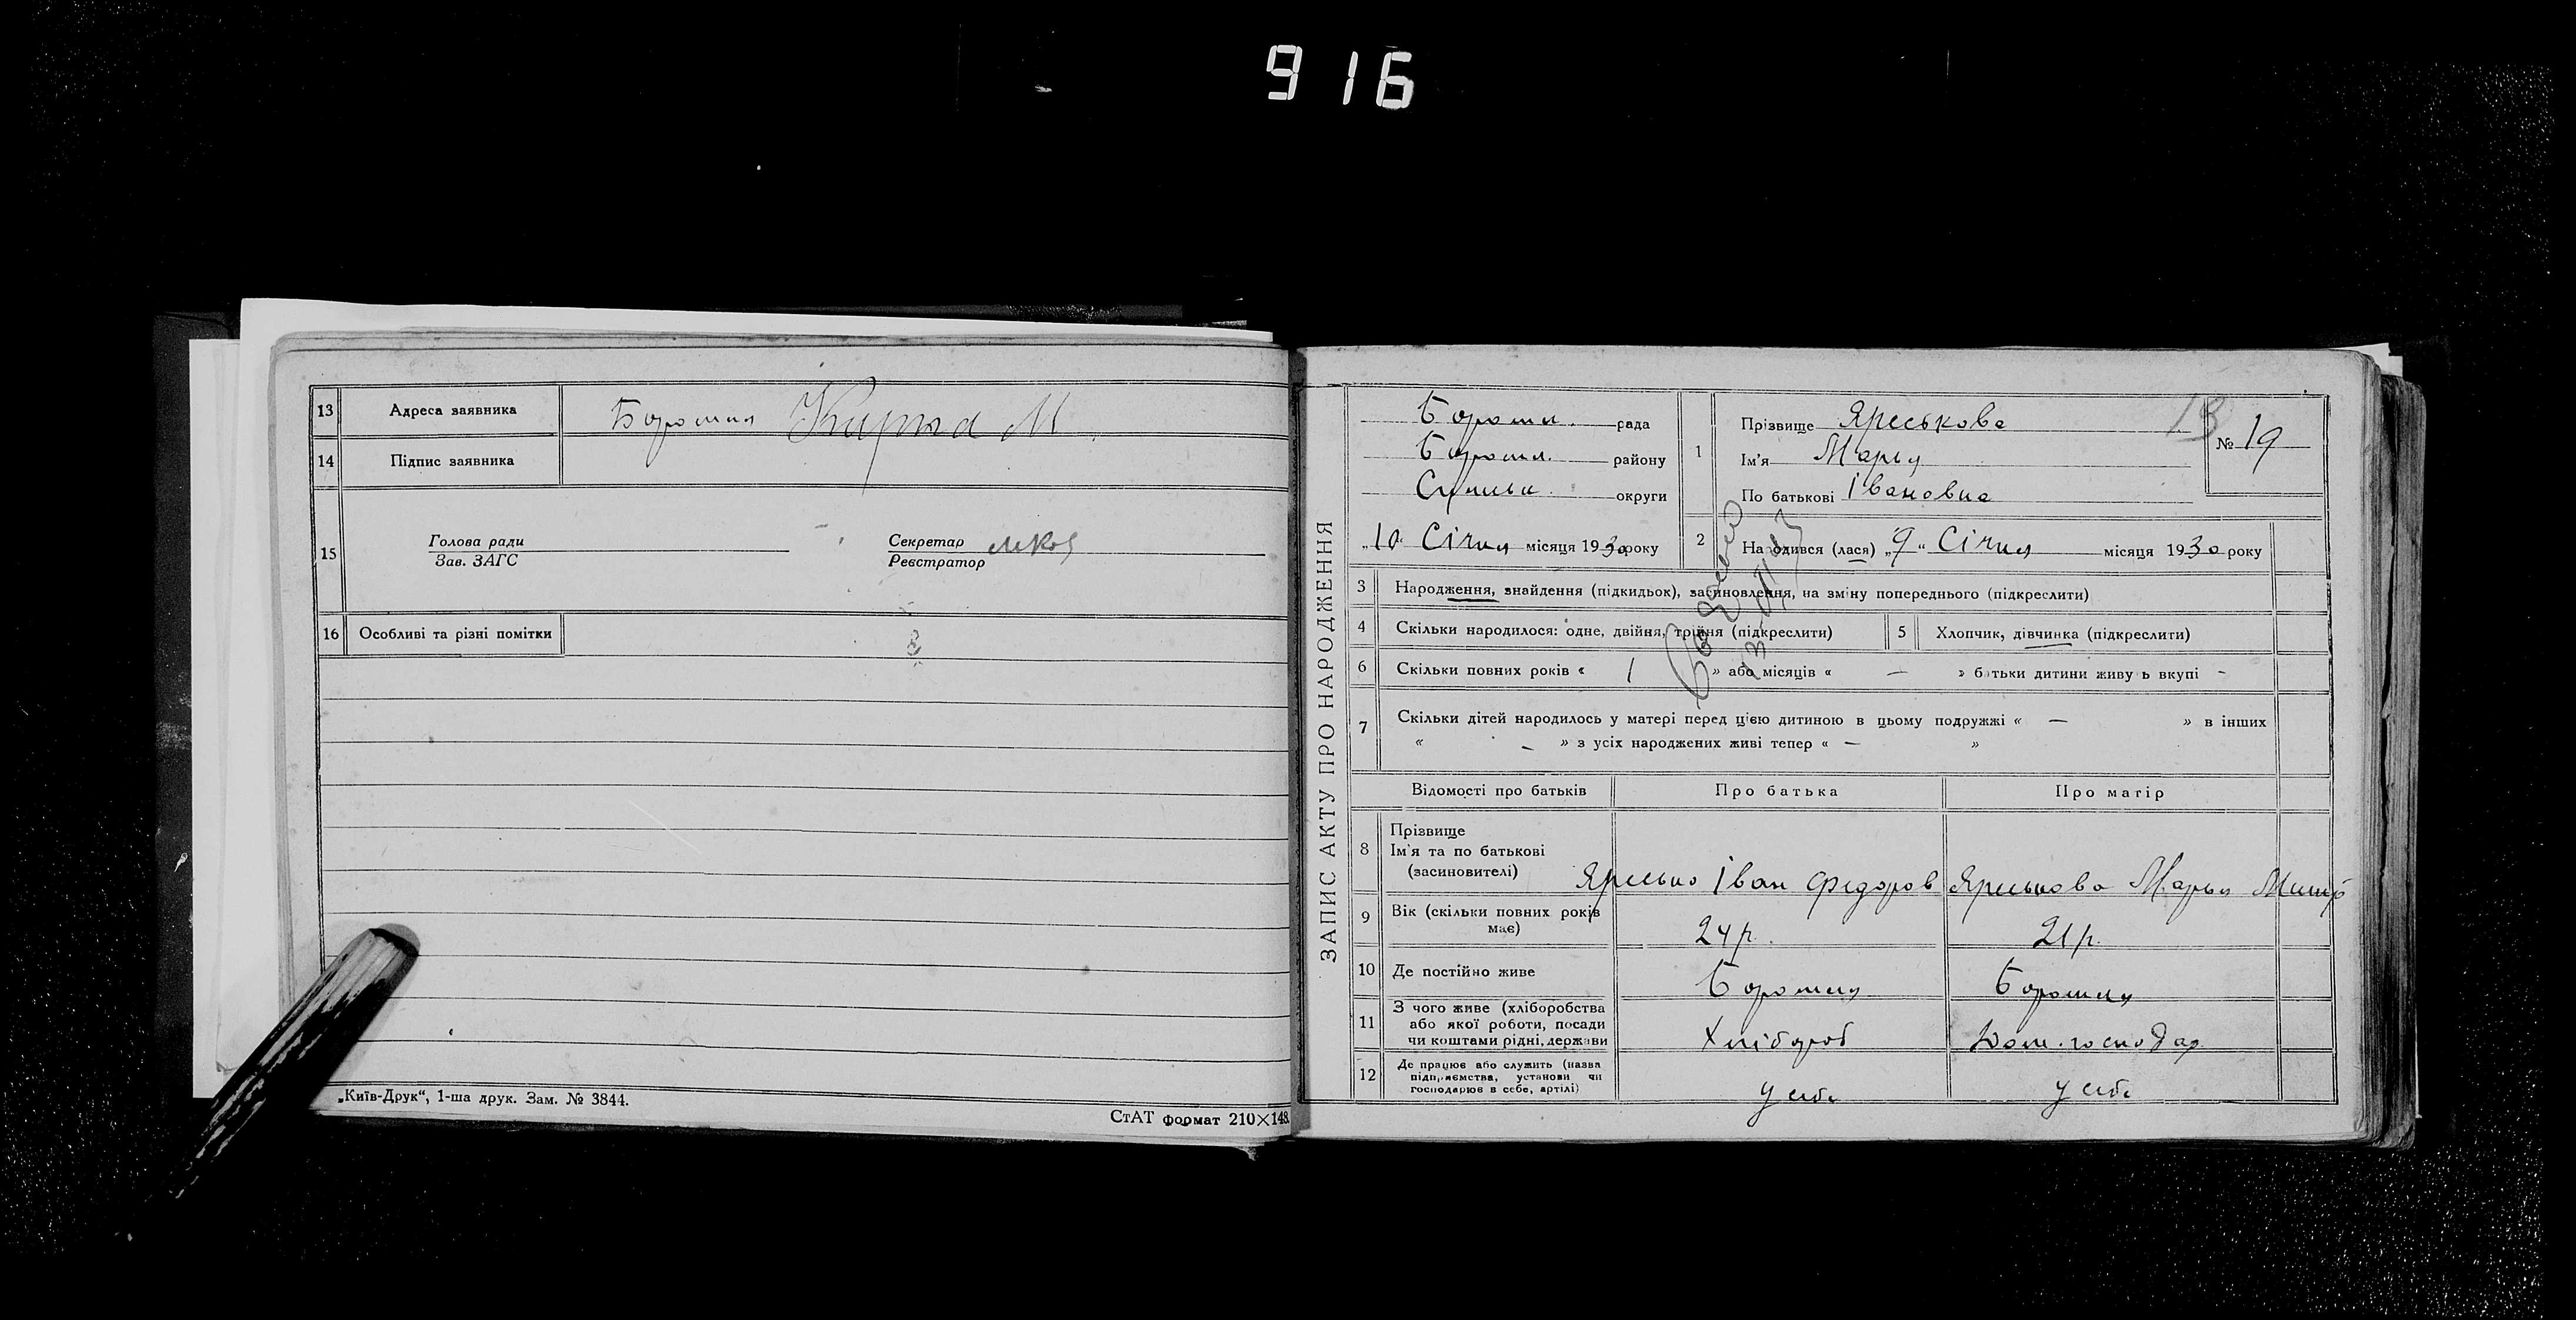 916
13 Адреса заявника Боромля Кирпа М.
14 Підпис заявника
15 Голова ради Секретар
Зав. ЗАГС Реєстратор
16 Особливі та різні помітки
„Київ-Друк“, 1-ша друк. Зам. № 3844.
СтАТ формат 210×148.
ЗАПИС АКТУ ПРО НАРОДЖЕННЯ
Боромл. рада
Боромл. району
Сумськ. округи
„10“ Січня місяця 1930 року
1 Прізвище Яреськова
Ім'я Марья
По батькові Івановна
13
№ 19
2 Народився (лася) „9“ Січня місяця 1930 року
3 Народження, знайдення (підкидьок), засиновлення, на зміну попереднього (підкреслити)
4 Скільки народилося: одне, двійня, трійня (підкреслити) 5 Хлопчик, дівчинка (підкреслити)
6 Скільки повних років « 1 » або місяців « — » батьки дитини живуть вкупі -
7 Скільки дітей народилось у матері перед цією дитиною в цьому подружжі « — » в інших
« - » з усіх народжених живі тепер « — »
Відомості про батьків Про батька Про матір
8 Прізвище
Ім'я та по батькові
(засиновителі) Яресько Іван Федоров Яреськова Марья Митр
9 Вік (скільки повних років
має) 24 р. 21 р.
10 Де постійно живе Боромля Боромля
11 З чого живе (хліборобства
або якої роботи, посади
чи коштами рідні, держави Хлібороб Дом. господар
12 Де працює або служить (назва
підприємства, установи чи
господарює в себе, артілі) у себе у себе